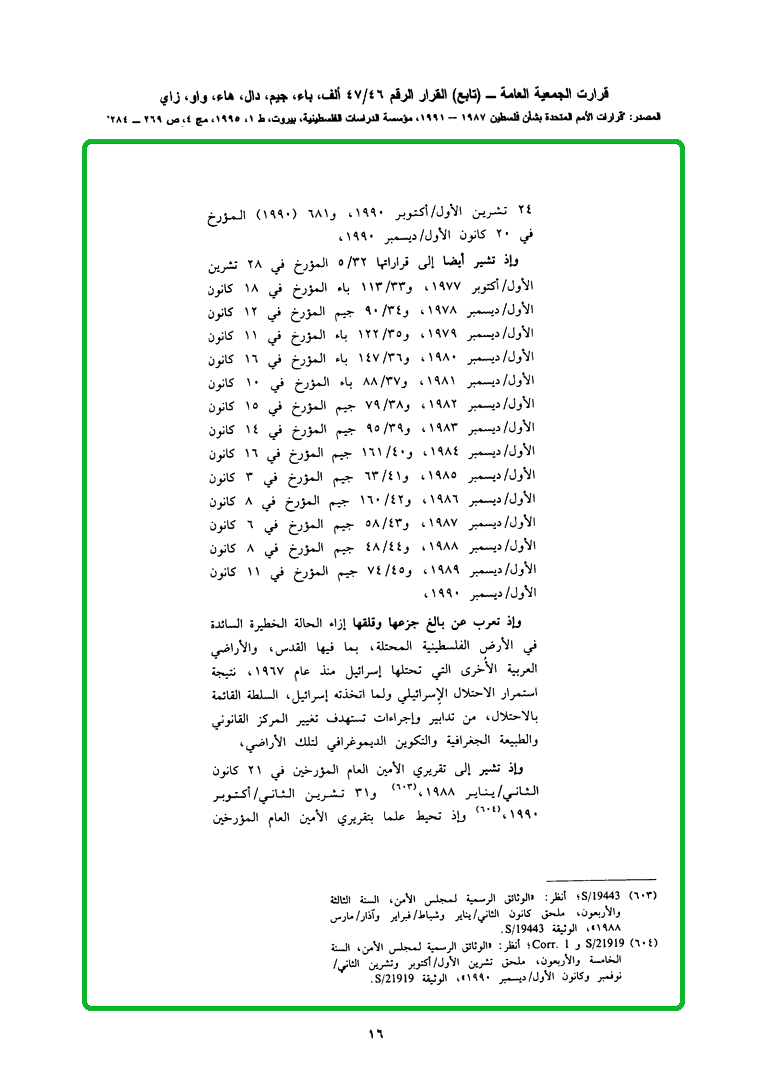 قرارت الجمعية العامة – (تابع) القرار الرقم ٤٧/٤٦ ألف، باء، جيم، دال، هاء، واو، زاي
المصدر: "قرارات الأمم المتحدة بشأن فلسطين ١٩٨٧ – ١٩٩١، مؤسسة الدراسات الفلسطينية، بيروت، ط ١، ١٩٩٥، مج ٤، ص ٢٦٩ – ٢٨٤"
٢٤ تشرين الأول/أكتوبر ١٩٩٠، و٦٨١ (١٩٩٠) المؤرخ
في ٢٠ كانون الأول/ديسمبر ١٩٩٠،
وإذ تشير أيضا إلى قراراتها ٥/٣٢ المؤرخ في ٢٨ تشرين
الأول/أكتوبر ١٩٧٧، و١١٣/٣٣ باء المؤرخ في ١٨ كانون
الأول/ديسمبر ١٩٧٨، و٩٠/٣٤ جيم المؤرخ في ١٢ كانون
الأول/ديسمبر ١٩٧٩، و١٢٢/٣٥ باء المؤرخ في ١١ كانون
الأول/ديسمبر ١٩٨٠، و١٤٧/٣٦ باء المؤرخ في ١٦ كانون
الأول/ديسمبر ١٩٨١، و٨٨/٣٧ باء المؤرخ في ١٠ كانون
الأول/ديسمبر ١٩٨٢، و٧٩/٣٨ جيم المؤرخ في ١٥ كانون
الأول/ديسمبر ١٩٨٣، و٩٥/٣٩ جيم المؤرخ في ١٤ كانون
الأول/ديسمبر ١٩٨٤، و١٦١/٤٠ جيم المؤرخ في ١٦ كانون
الأول/ديسمبر ١٩٨٥، و٦٣/٤١ جيم المؤرخ في ٣ كانون
الأول/ديسمبر ١٩٨٦، و١٦٠/٤٢ جيم المؤرخ في ٨ كانون
الأول/ديسمبر ١٩٨٧، و٥٨/٤٣ جيم المؤرخ في ٦ كانون
الأول/ديسمبر ١٩٨٨، و٤٨/٤٤ جيم المؤرخ في ٨ كانون
الأول/ديسمبر ١٩٨٩، و٧٤/٤٥ جيم المؤرخ في ١١ كانون
الأول/ديسمبر ١٩٩٠،
وإذ تعرب عن بالغ جزعها وقلقها إزاء الحالة الخطيرة السائدة
في الأرض الفلسطينية المحتلة، بما فيها القدس، والأراضي
العربية الأخرى التي تحتلها إسرائيل منذ عام ١٩٦٧، نتيجة
استمرار الاحتلال الإسرائيلي ولما اتخذته إسرائيل، السلطة القائمة
بالاحتلال، من تدابير وإجراءات تستهدف تغيير المركز القانوني
والطبيعة الجغرافية والتكوين الديموغرافي لتلك الأراضي،
وإذ تشير إلى تقريري الأمين العام المؤرخين في ٢١ كانون
الثاني/يناير ١٩٨٨،(٦٠٣) و٣١ تشرين الثاني/أكتوبر
١٩٩٠،(٦٠٤) وإذ تحيط علما بتقريري الأمين العام المؤرخين
(٦٠٣) S/19443؛ أنظر: «الوثائق الرسمية لمجلس الأمن، السنة الثالثة
والأربعون، ملحق كانون الثاني/يناير وشباط/فبراير وآذار/مارس
١٩٨٨»، الوثيقة S/19443.
(٦٠٤) S/21919 و Corr. 1؛ أنظر: «الوثائق الرسمية لمجلس الأمن، السنة
الخامسة والأربعون، ملحق تشرين الأول/أكتوبر وتشرين الثاني/
نوفمبر وكانون الأول/ديسمبر ١٩٩٠»، الوثيقة S/21919.
١٦